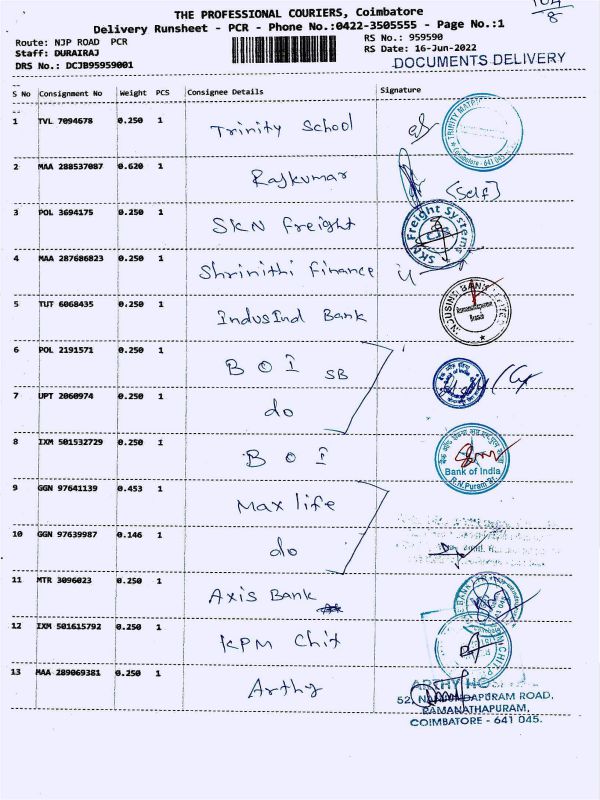 THE PROFESSIONAL COURIERS, Coimbatore
Delivery Runsheet - PCR - Phone No.:0422-3505555 - Page No.:1
Route: NJP ROAD PCR
RS No.: 959590
Staff: DURAIRAJ
RS Date: 16-Jun-2022
DRS No.: DCJB95959001
DOCUMENTS DELIVERY
S No Consignment No Weight PCS Consignee Details Signature
1 TVL 7094678 0.250 1 Trinity School
2 MAA 288537087 0.620 1 Rajkumar (Self)
3 POL 3694175 0.250 1 SKN Freight
4 MAA 287686823 0.250 1 Shrinithi Finance
5 TUT 6068435 0.250 1 IndusInd Bank
6 POL 2191571 0.250 1 BOI SB
7 UPT 2060974 0.250 1 do
8 IXM 501532729 0.250 1 BOI
Bank of India
R.N.Puram Br.
9 GGN 97641139 0.453 1 Max life
10 GGN 97639987 0.146 1 do
11 MTR 3096023 0.250 1 Axis Bank
12 IXM 501615792 0.250 1 KPM Chit
13 MAA 289069381 0.250 1 Arthy
ARTHY
52, PURAM ROAD,
RAMANATHAPURAM,
COIMBATORE - 641 045.